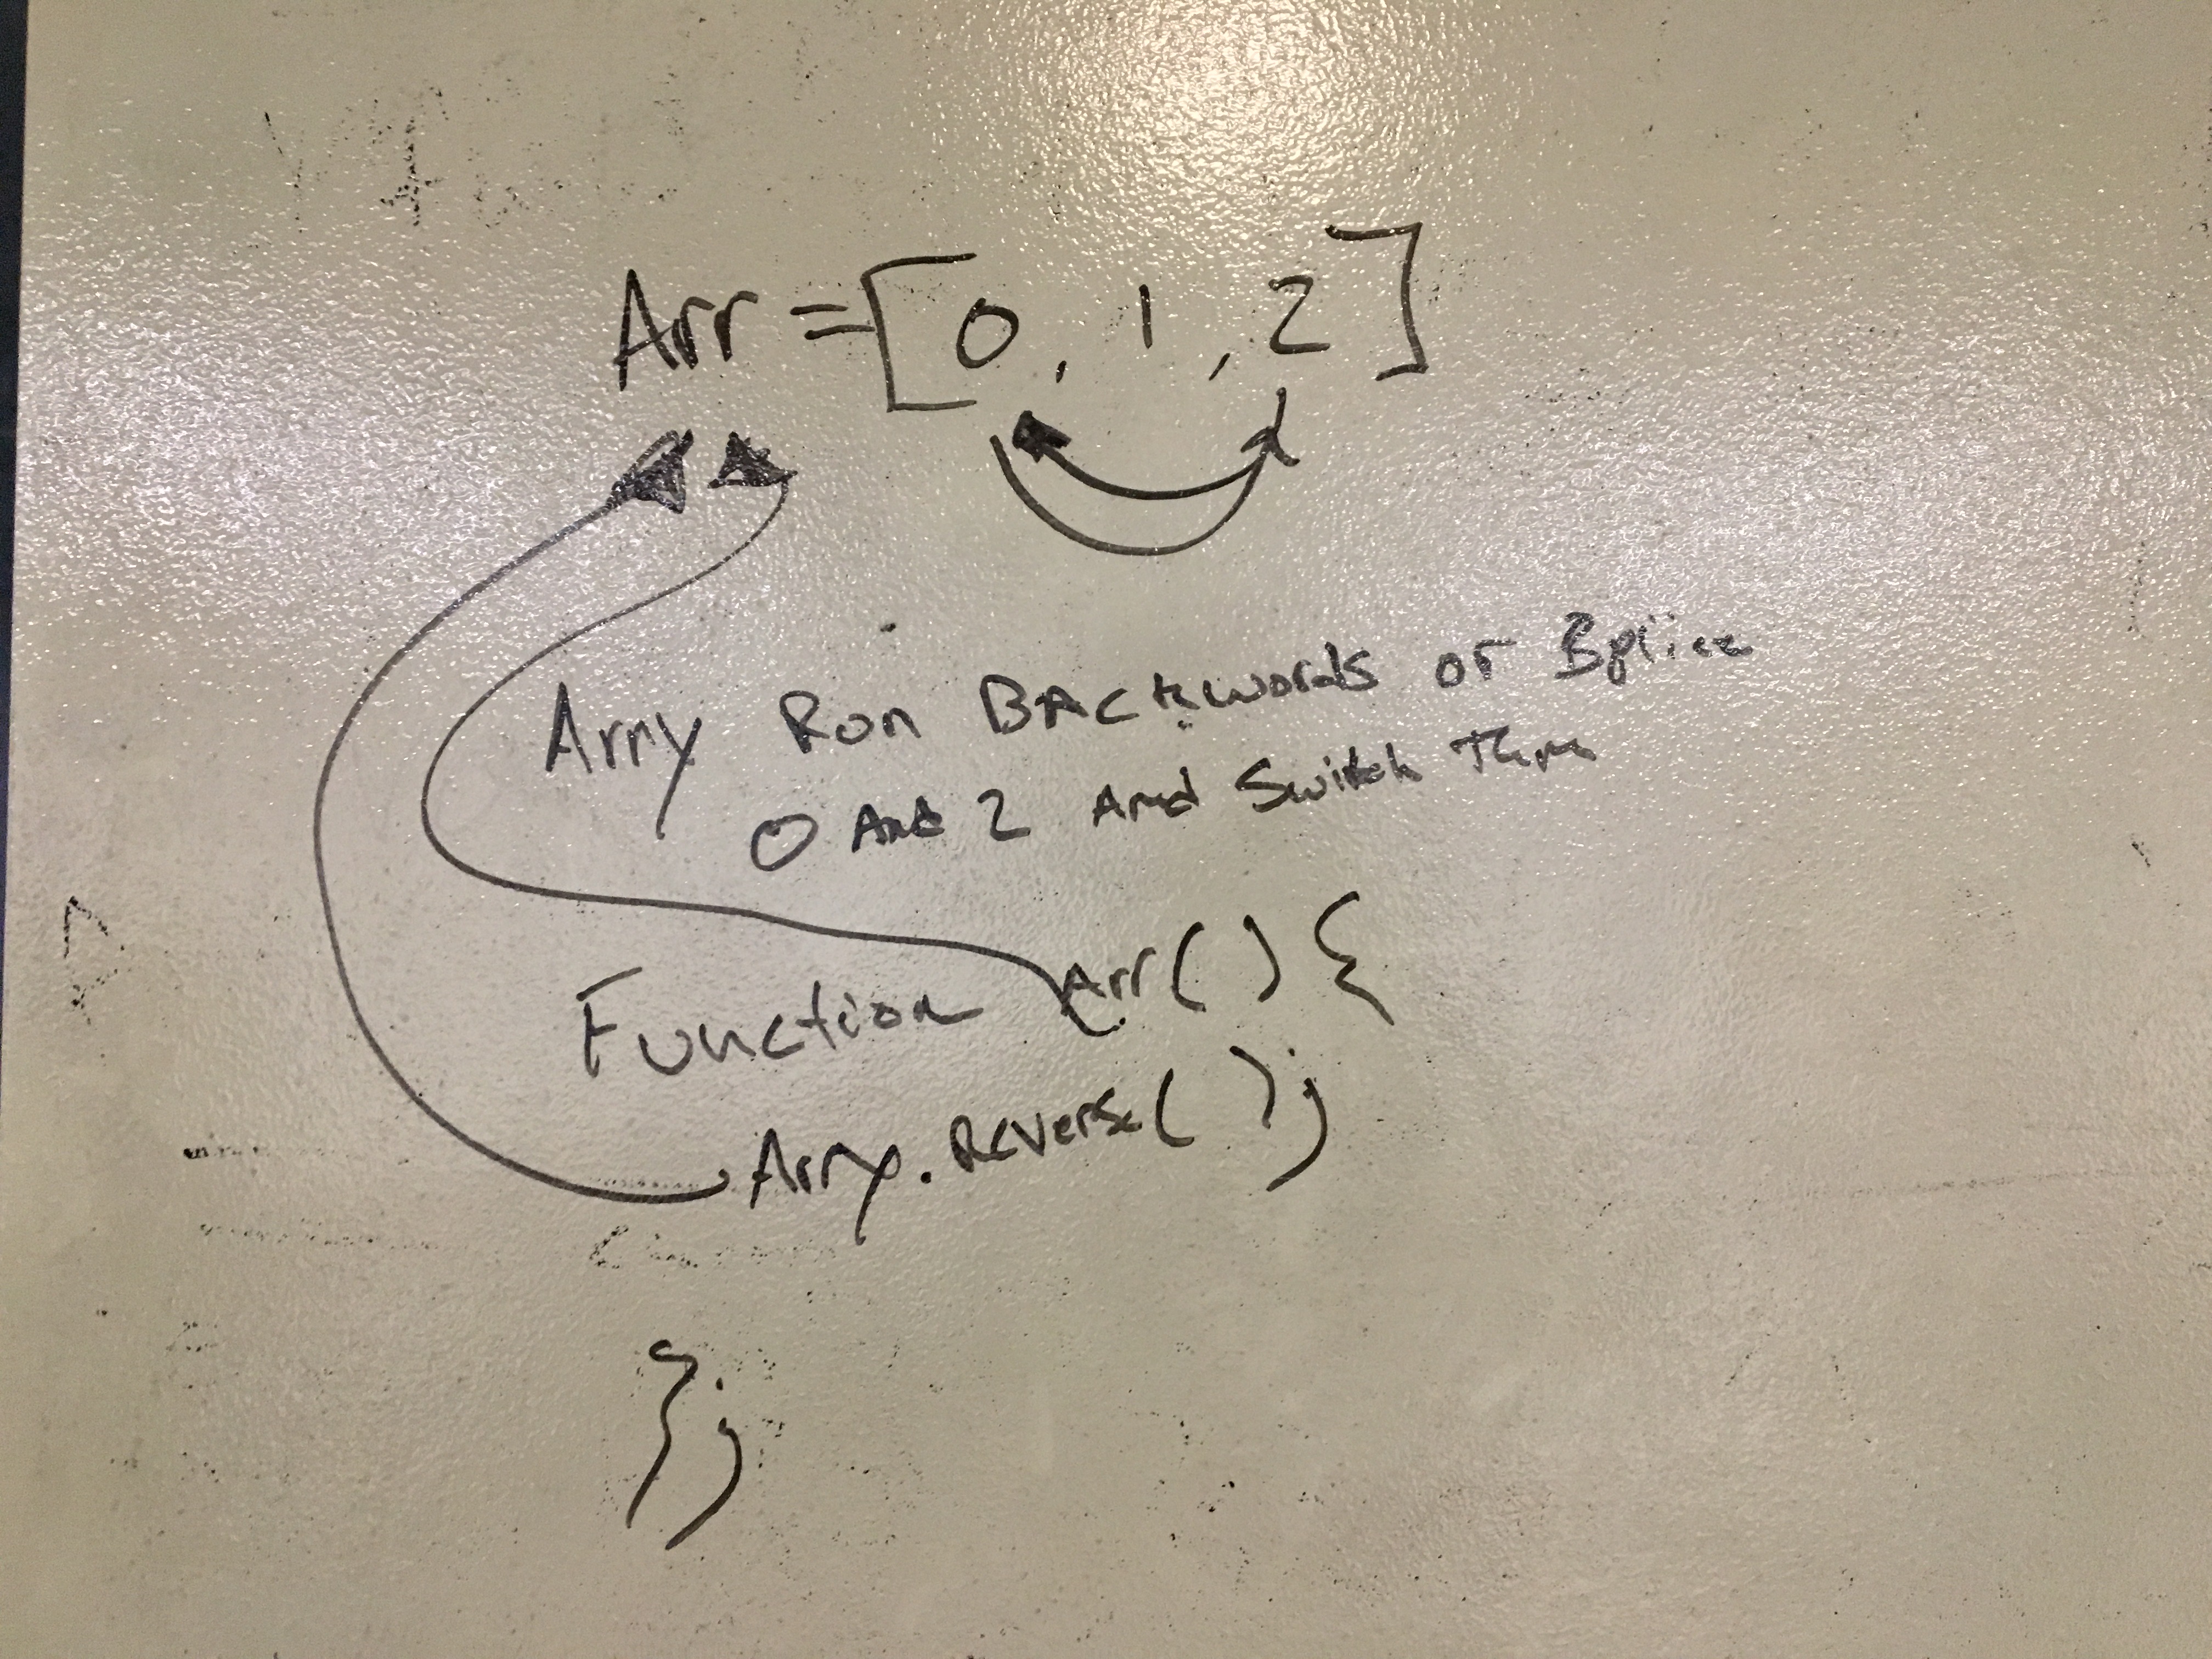 Arr = [0, 1, 2]
Arry Run Backwords or Bplice
0 And 2 And Switch Them
Function Arr() {
Arry.Reverse();
};